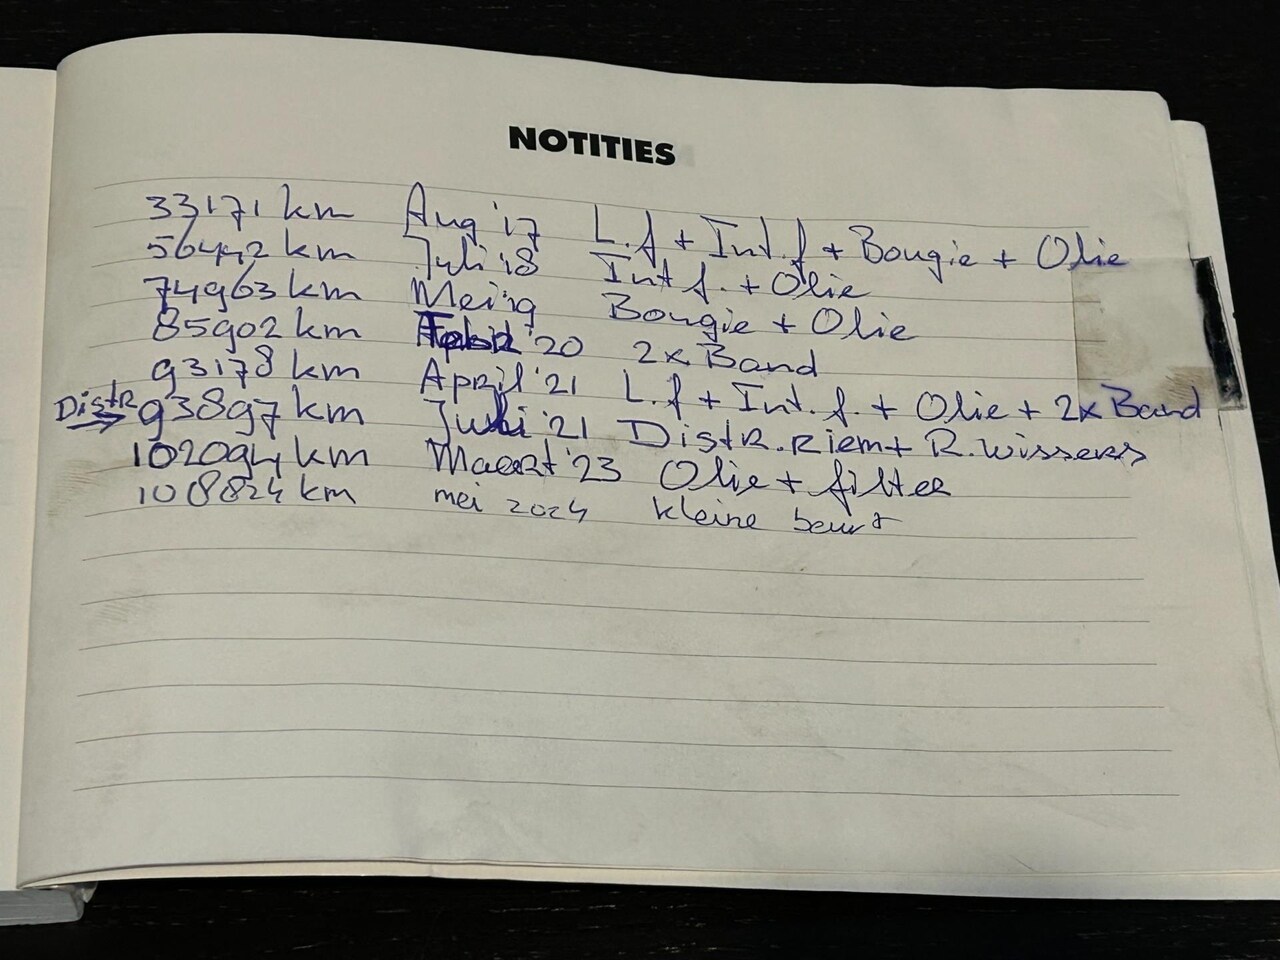 NOTITIES
33171 km Aug '17 L.f + Int.f + Bougie + Olie
56442 km Juli '18 Int f. + Olie
74963 km Mei '19 Bougie + Olie
85902 km '20 2x Band
93178 km April '21 L.f + Int.f. + Olie + 2x Band
DistR → 93897 km Juli '21 DistR.Riem + R.wissers
102094 km Maart '23 Olie + filter
108824 km mei 2024 kleine beurt